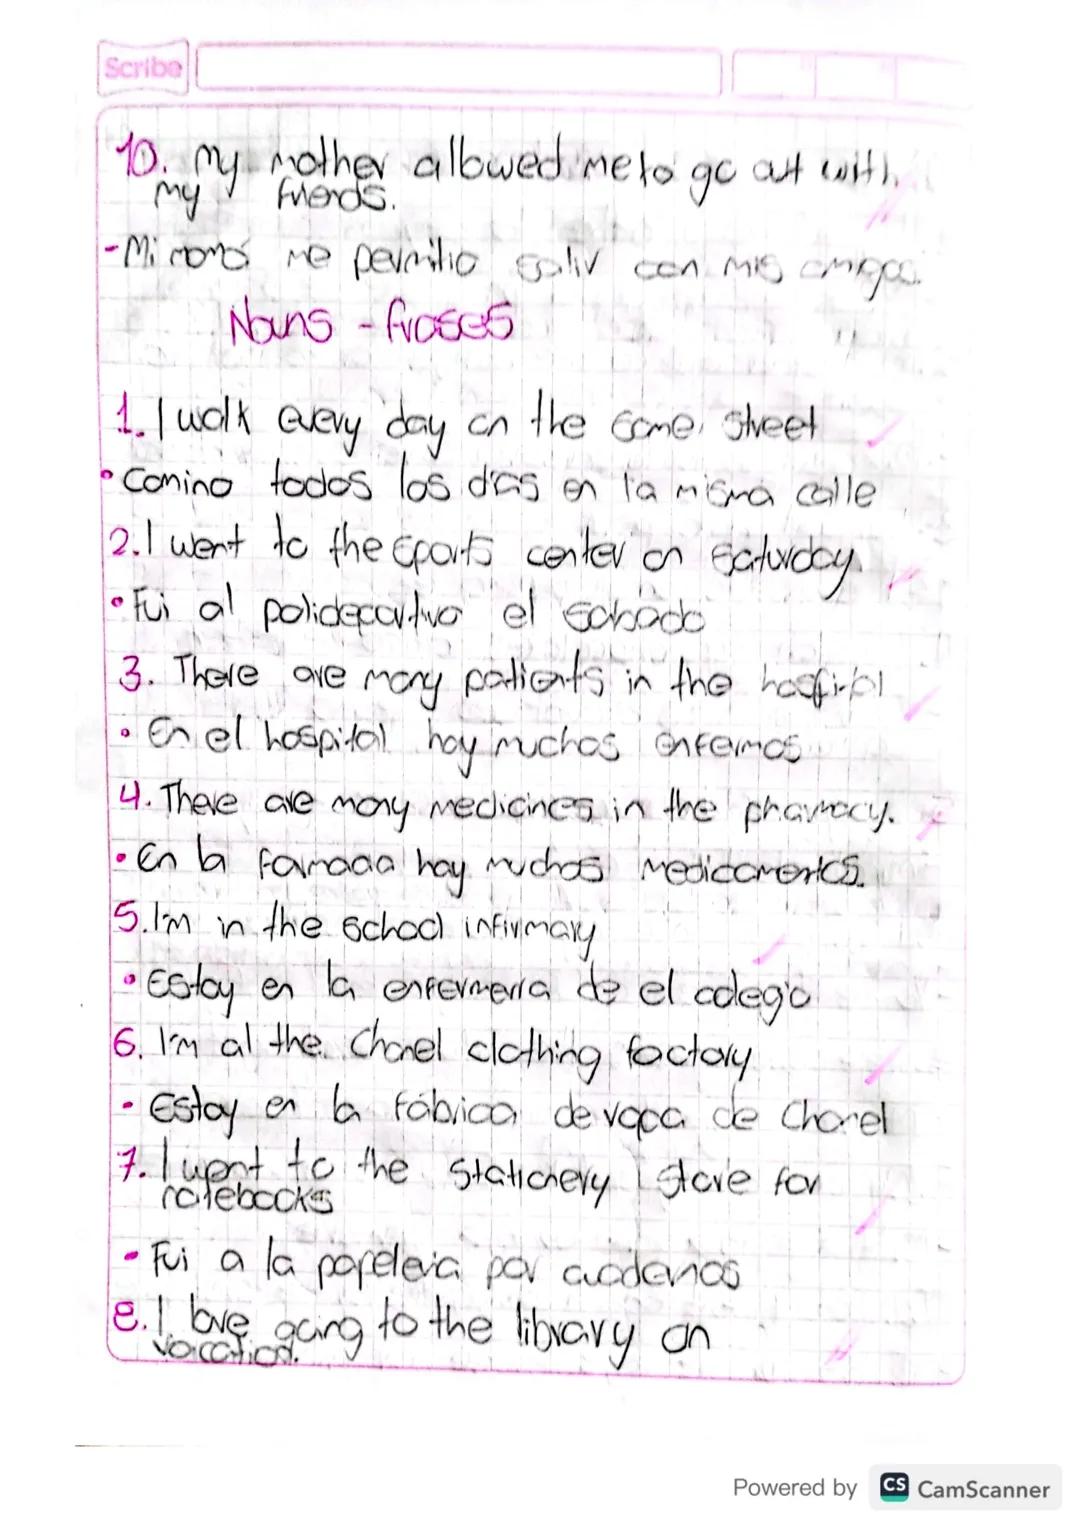 Scribe
10. My mother allowed me to go out with
my friends.
- Mi mamá me permitio salir con mis amigos.
Nouns - frases
1. I walk every day on the same street
• Camino todos los días en la misma calle
2. I went to the sports center on saturday.
• Fui al polideportivo el sabado
3. There are many patients in the hospital
• En el hospital hay muchos enfermos
4. There are many medicines in the pharmacy.
• En la farmacia hay muchos medicamentos.
5. I'm in the school infirmary
• Estoy en la enfermeria de el colegio
6. I'm al the Chanel clothing factory
• Estoy en la fábrica de ropa de Chanel
7. I went to the stationery store for
notebooks
• Fui a la papeleria por cuadernos
8. I love going to the library on
vacation.
Powered by CS CamScanner